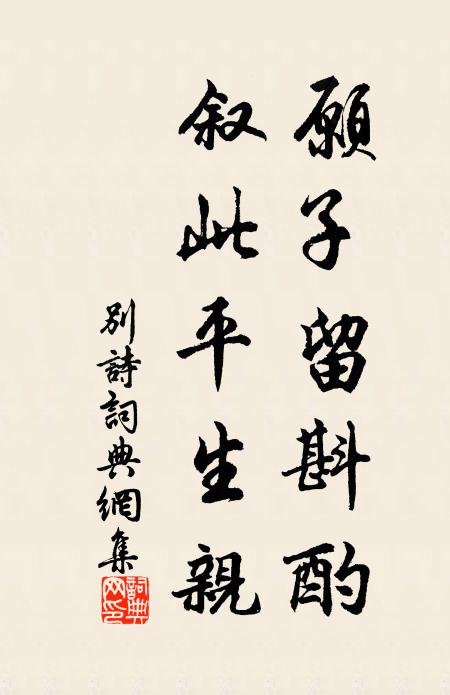 願子留斟酌
叙此平生親
別詩詞典網集
詞典网印